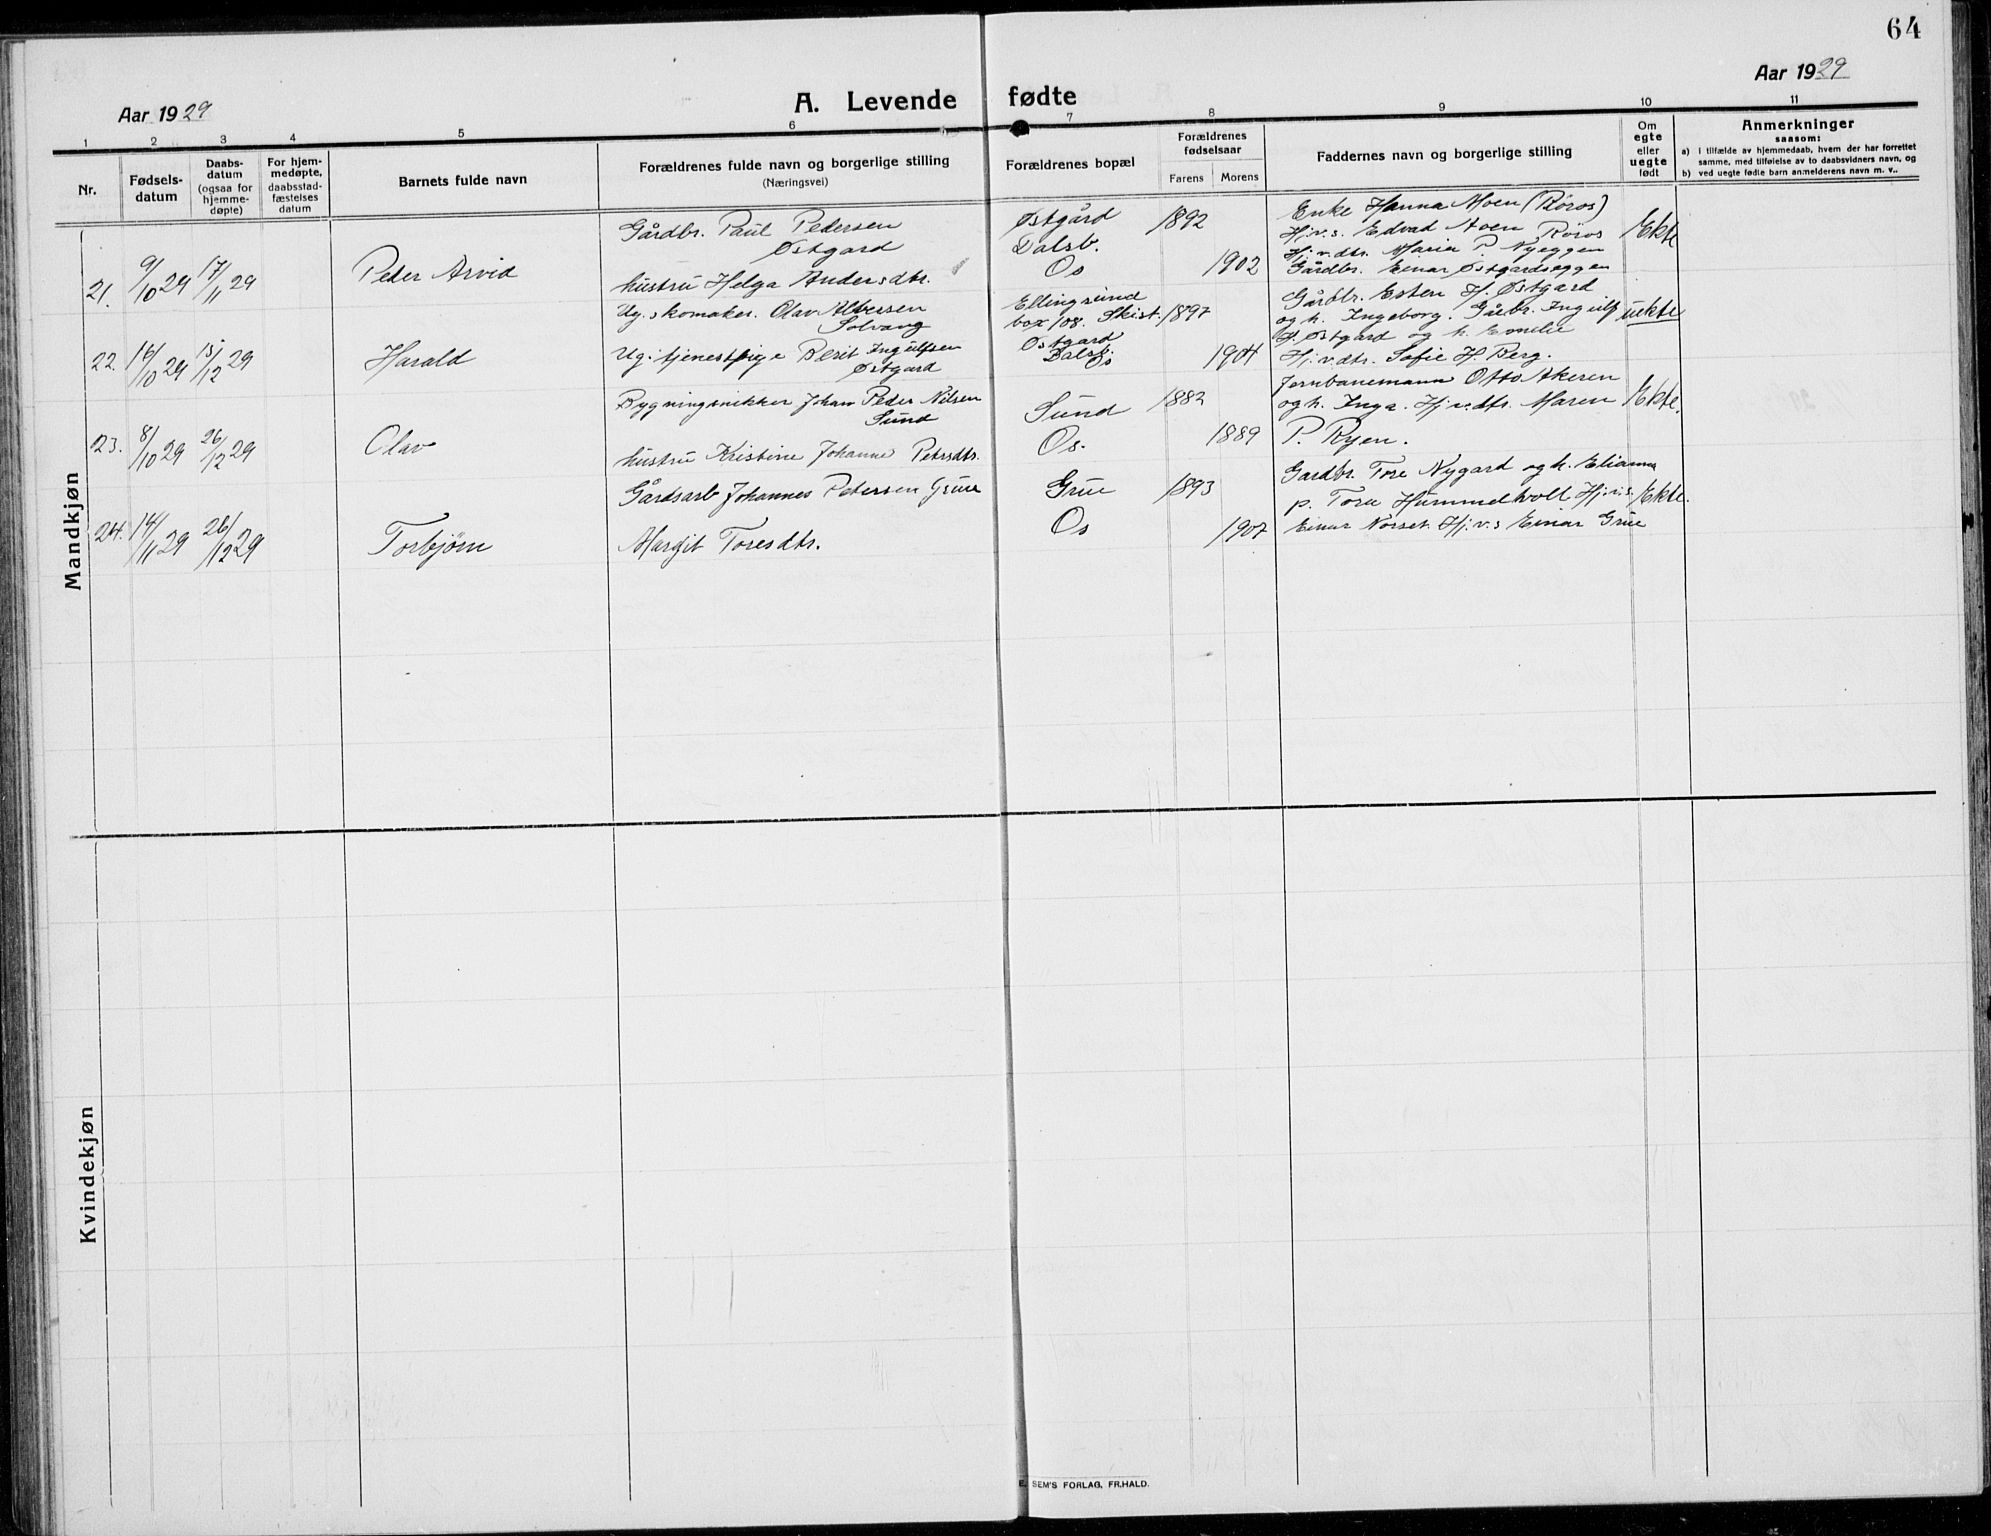 64
Aar 1929
A. Levende fødte
Aar 1929
1 2 3 4 5 6 7 8 9 10 11
Nr.
Fødsels-
datum
Daabs-
datum
(ogsaa for
hjemme-
døpte)
For hjem-
medøpte,
daabsstad-
fæstelses
datum
Barnets fulde navn
Forældrenes fulde navn og borgerlige stilling
(Næringsvei)
Forældrenes bopæl
Forældrenes
fødselsaar
Farens Morens
Faddernes navn og borgerlige stilling
Om
egte
eller
uegte
født
Anmerkninger
saasom:
a) i tilfælde av hjemmedaab, hvem der har forrettet
samme, med tilføielse av to daabsvidners navn, og
b) ved uegte fødte barn anmelderens navn m. v..
Mandkjøn
21. 9/10 29 17/11 29 Peter Arvid
Gårdbr. Paul Pedersen
Østgard
hustru Helga Andersdtr.
Østgård
Dalsb.
Os
1892
1902
Enke Hanna Moen (Røros)
Hj.v.s. Edvad Aoen Røros
Hj.v.dtr. Maria P. Nyeggen
Gårdbr. Einar Østgardseggen
Ekte
22. 16/10 29 15/12 29 Harald
Ug. skomaker. Olav Albersen
Solvang
Ug. tjenestpige Berit Ingulfsen
Østgard
Ellingsund
box 108. Skist.
Østgard
Dalsb.
Os
1897
1904
Gårdbr. Esten H. Østgard
og h. Ingeborg. Gårbr. Ingulf
H. Østgard og h. Emelie
Hj.v.dtr. Sofie H. Berg.
uekte
23. 8/10 29 26/12 29 Olav
Bygningsnekker Johan Peder Nilsen
Sund
hustru Kristine Johanne Petersdtr.
Sund
Os.
1882
1889
Jernbanemann Otto Akeren
og h. Inga. Hj.v.dtr. Maren
P. Ryen.
Ekte.
24. 14/11 29 26/12 29 Torbjørn
Gårdsarb Johannes Petersen Grue
Margit Toresdtr.
Grue
Os
1893
1907
Gardbr. Tore Nygard og h. Elianna
p. Tora Hummelvoll Hj.v.s.
Einar Norset. Hj.v.s Einar Grue
Ekte.
Kvindekjøn
E. SEM'S FORLAG, FR.HALD.